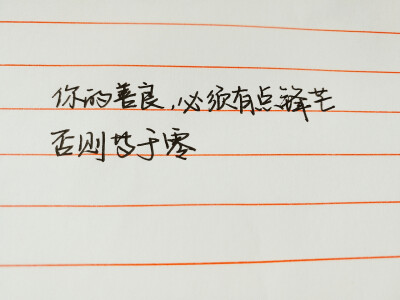 你的善良，必须有点锋芒
否则等于零